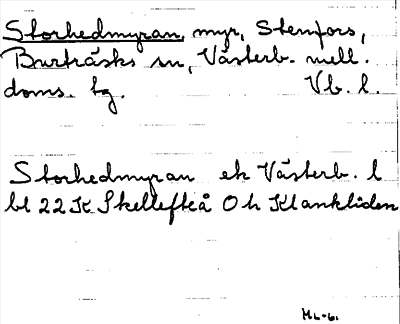 Storhedmyran, myr, Stenfors,
Burträsks sn, Västerb. mell.
doms. tg. Vb. l.
Storhedmyran ek Västerb. l
bl 22 K Skellefteå 0 h Klankliden